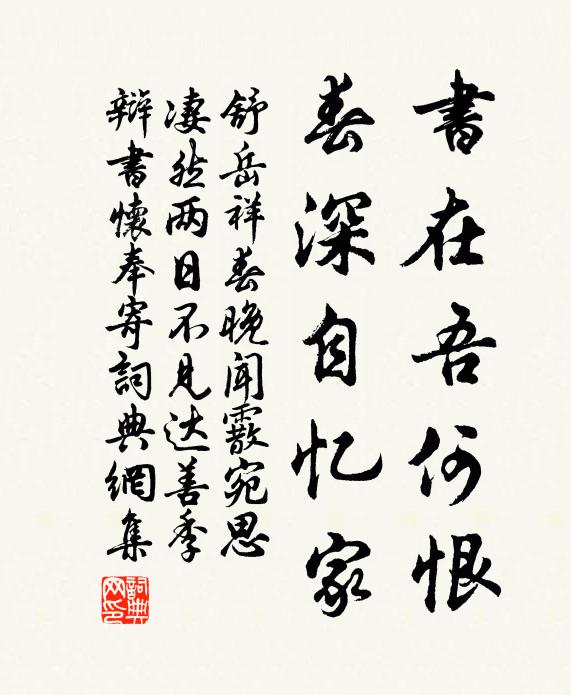 書在吾何恨
春深自忆家
舒岳祥春晚闻霰宛思
凄然两日不见达善季
辩書懷奉寄詞典網集
詞典